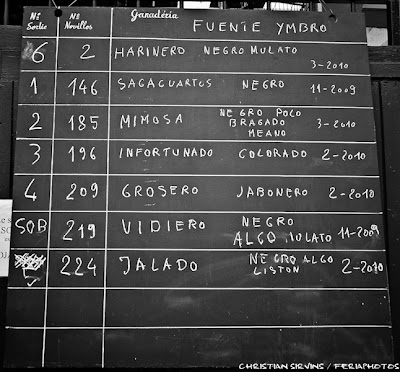 Nº Sortie Nº Novillos Ganadéria FUENTE YMBRO
6 2 HARINERO NEGRO MULATO 3-2010
1 146 SACACUARTOS NEGRO 11-2009
2 185 MIMOSA NEGRO POLO BRAGADO MEANO 3-2010
3 196 INFORTUNADO COLORADO 2-2010
4 209 GROSERO JABONERO 2-2010
SOB 219 VIDIERO NEGRO ALGO MULATO 11-2009
224 JALADO NEGRO ALGO LISTON 2-2010
CHRISTIAN SIRVINS / FERIAPHOTOS